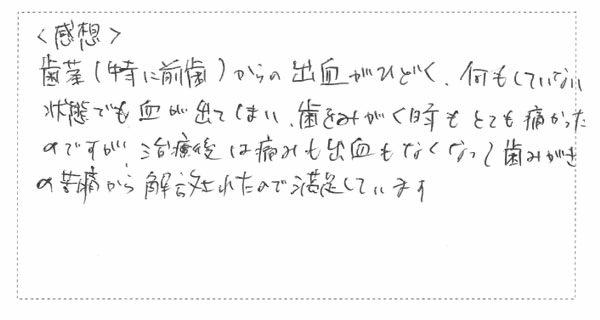 <感想>
歯茎(特に前歯)からの出血がひどく、何もしていない
状態でも血が出てしまい、歯をみがく時もとても痛かった
のですが、治療後は痛みも出血もなくなって歯みがき
の苦痛から解放されたので満足しています